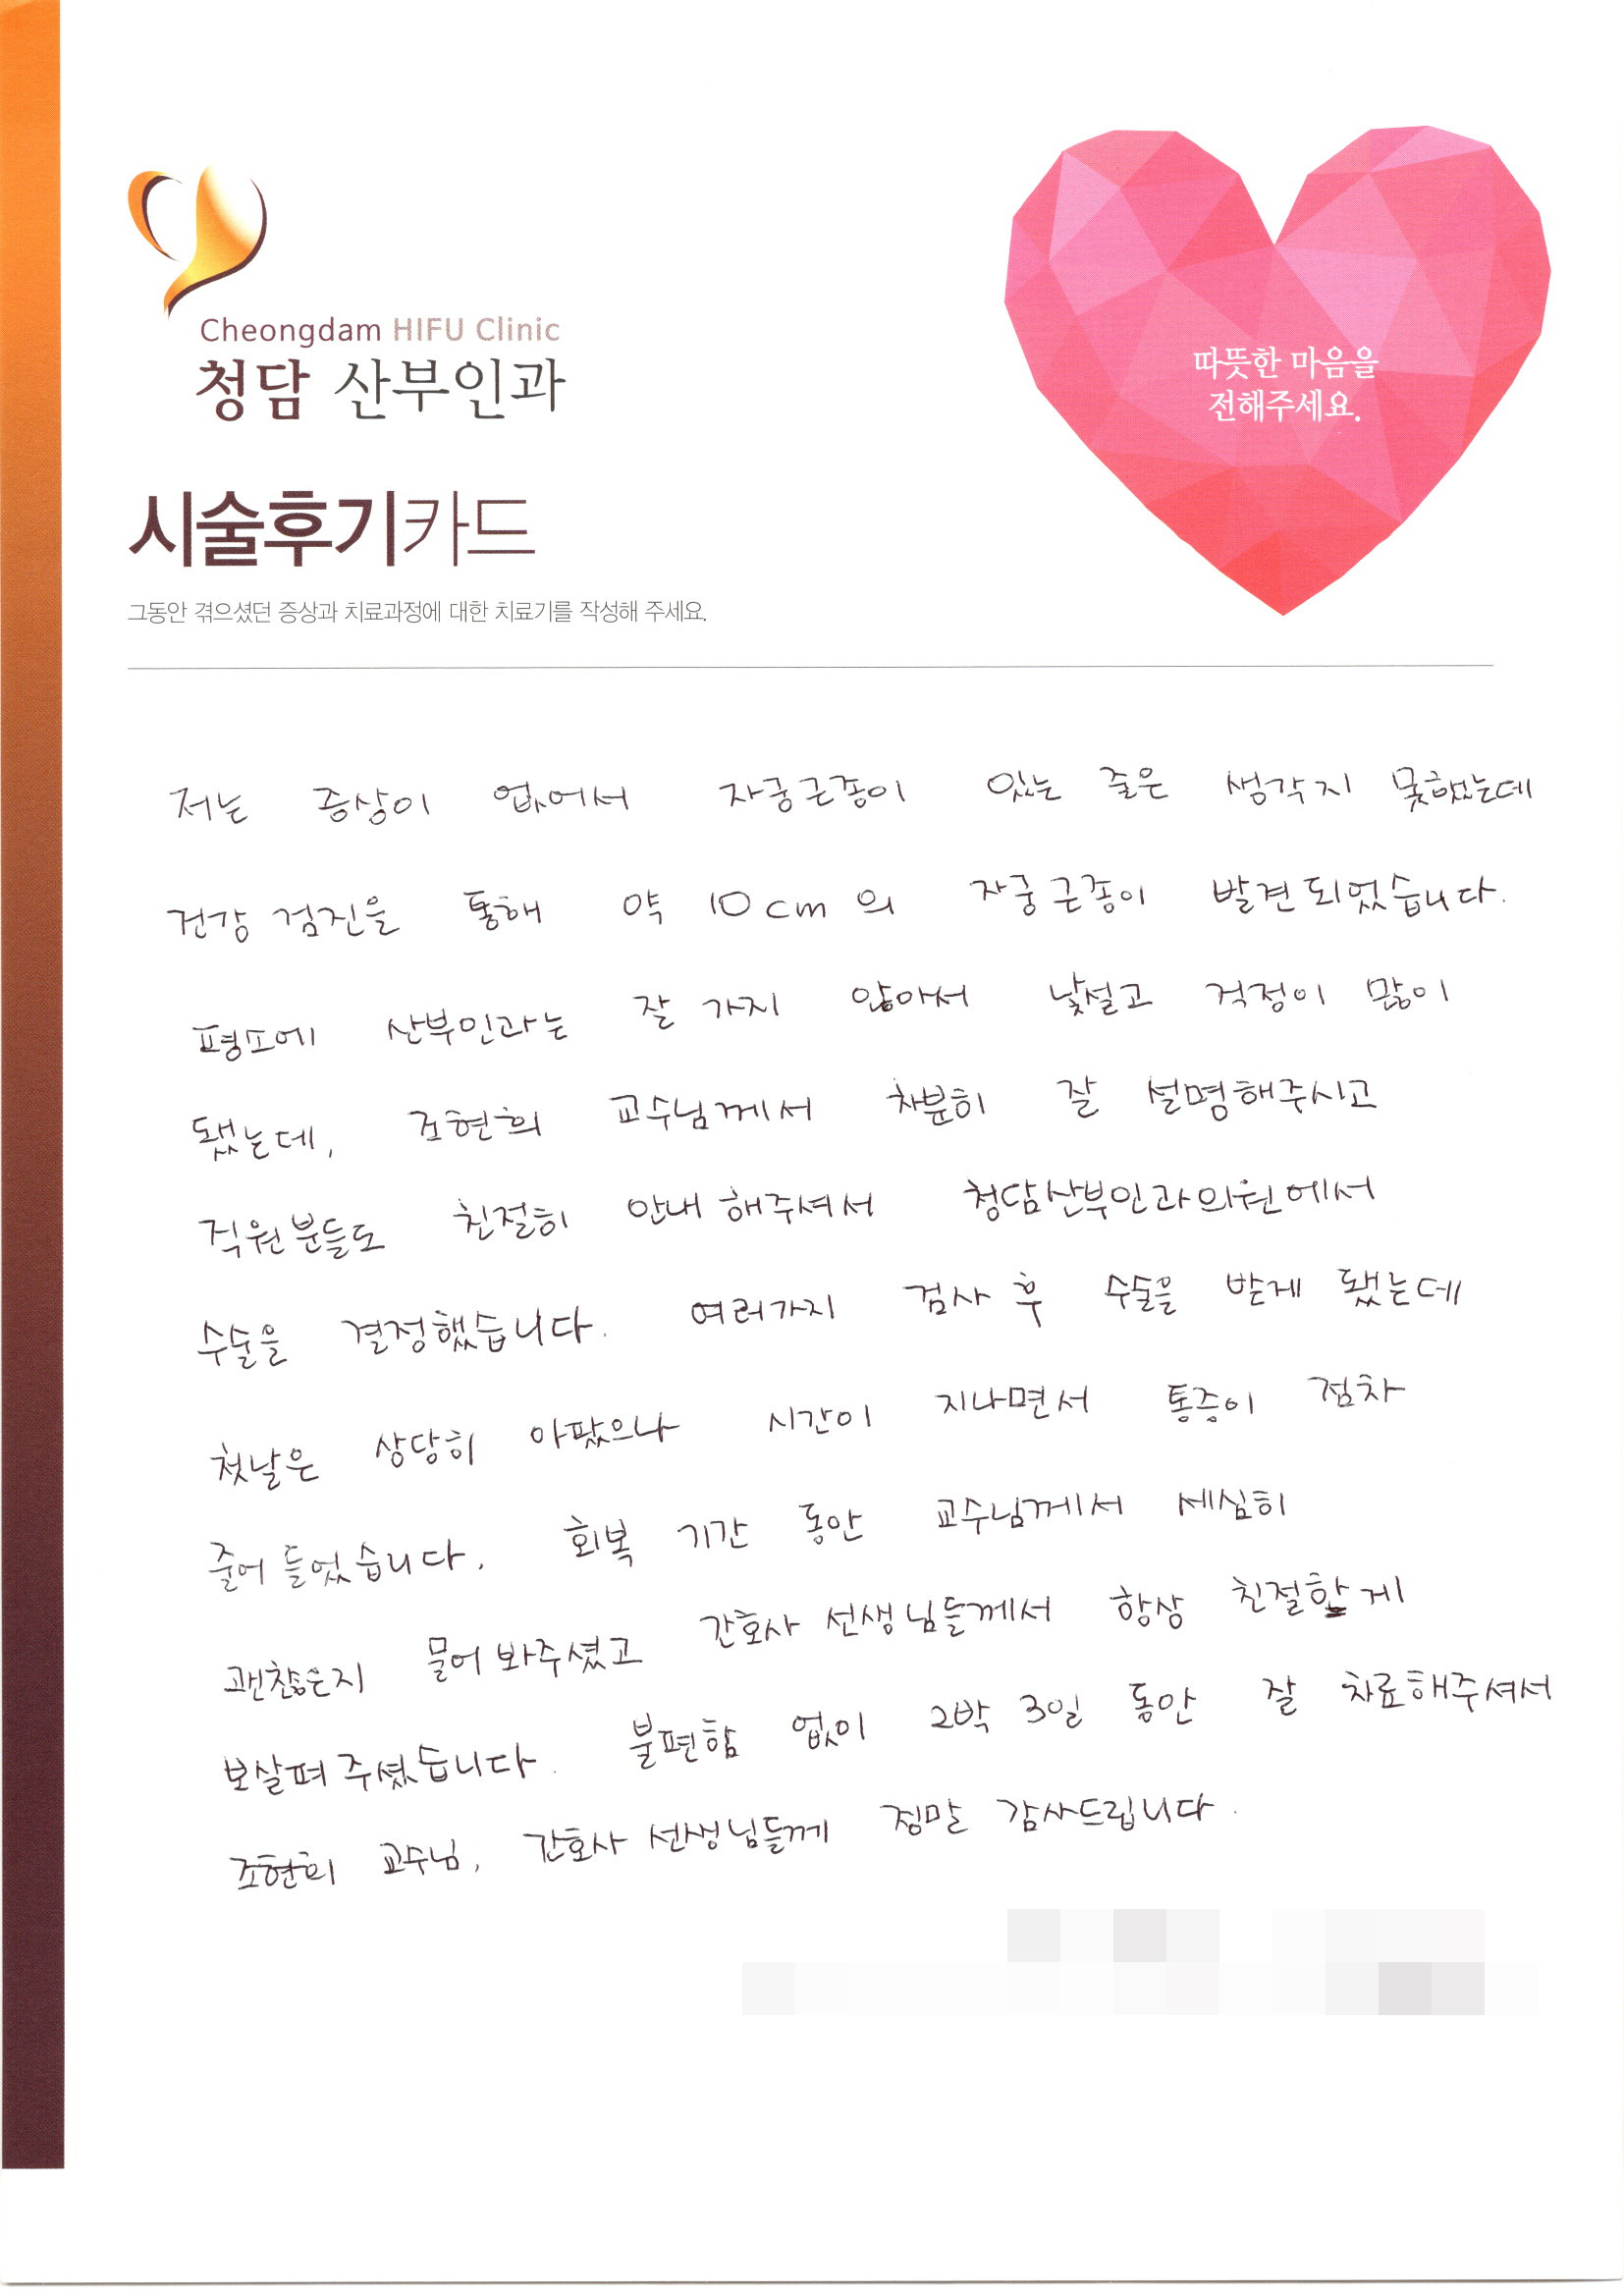 Cheongdam HIFU Clinic
청담 산부인과
따뜻한 마음을
전해주세요.
시술후기카드
그동안 겪으셨던 증상과 치료과정에 대한 치료기를 작성해 주세요.
저는 증상이 없어서 자궁근종이 있는 줄은 생각지 못했는데
건강 검진을 통해 약 10cm의 자궁근종이 발견되었습니다.
평소에 산부인과는 잘 가지 않아서 낯설고 걱정이 많이
됐는데, 조현희 교수님께서 차분히 잘 설명해주시고
직원분들도 친절히 안내해주셔서 청담산부인과의원에서
수술을 결정했습니다. 여러가지 검사 후 수술을 받게 됐는데
첫날은 상당히 아팠으나 시간이 지나면서 통증이 점차
줄어 들었습니다. 회복 기간 동안 교수님께서 세심히
괜찮은지 물어봐주셨고 간호사 선생님들께서 항상 친절하게
보살펴 주셨습니다. 불편함 없이 2박 3일 동안 잘 치료해주셔서
조현희 교수님, 간호사 선생님들께 정말 감사드립니다.